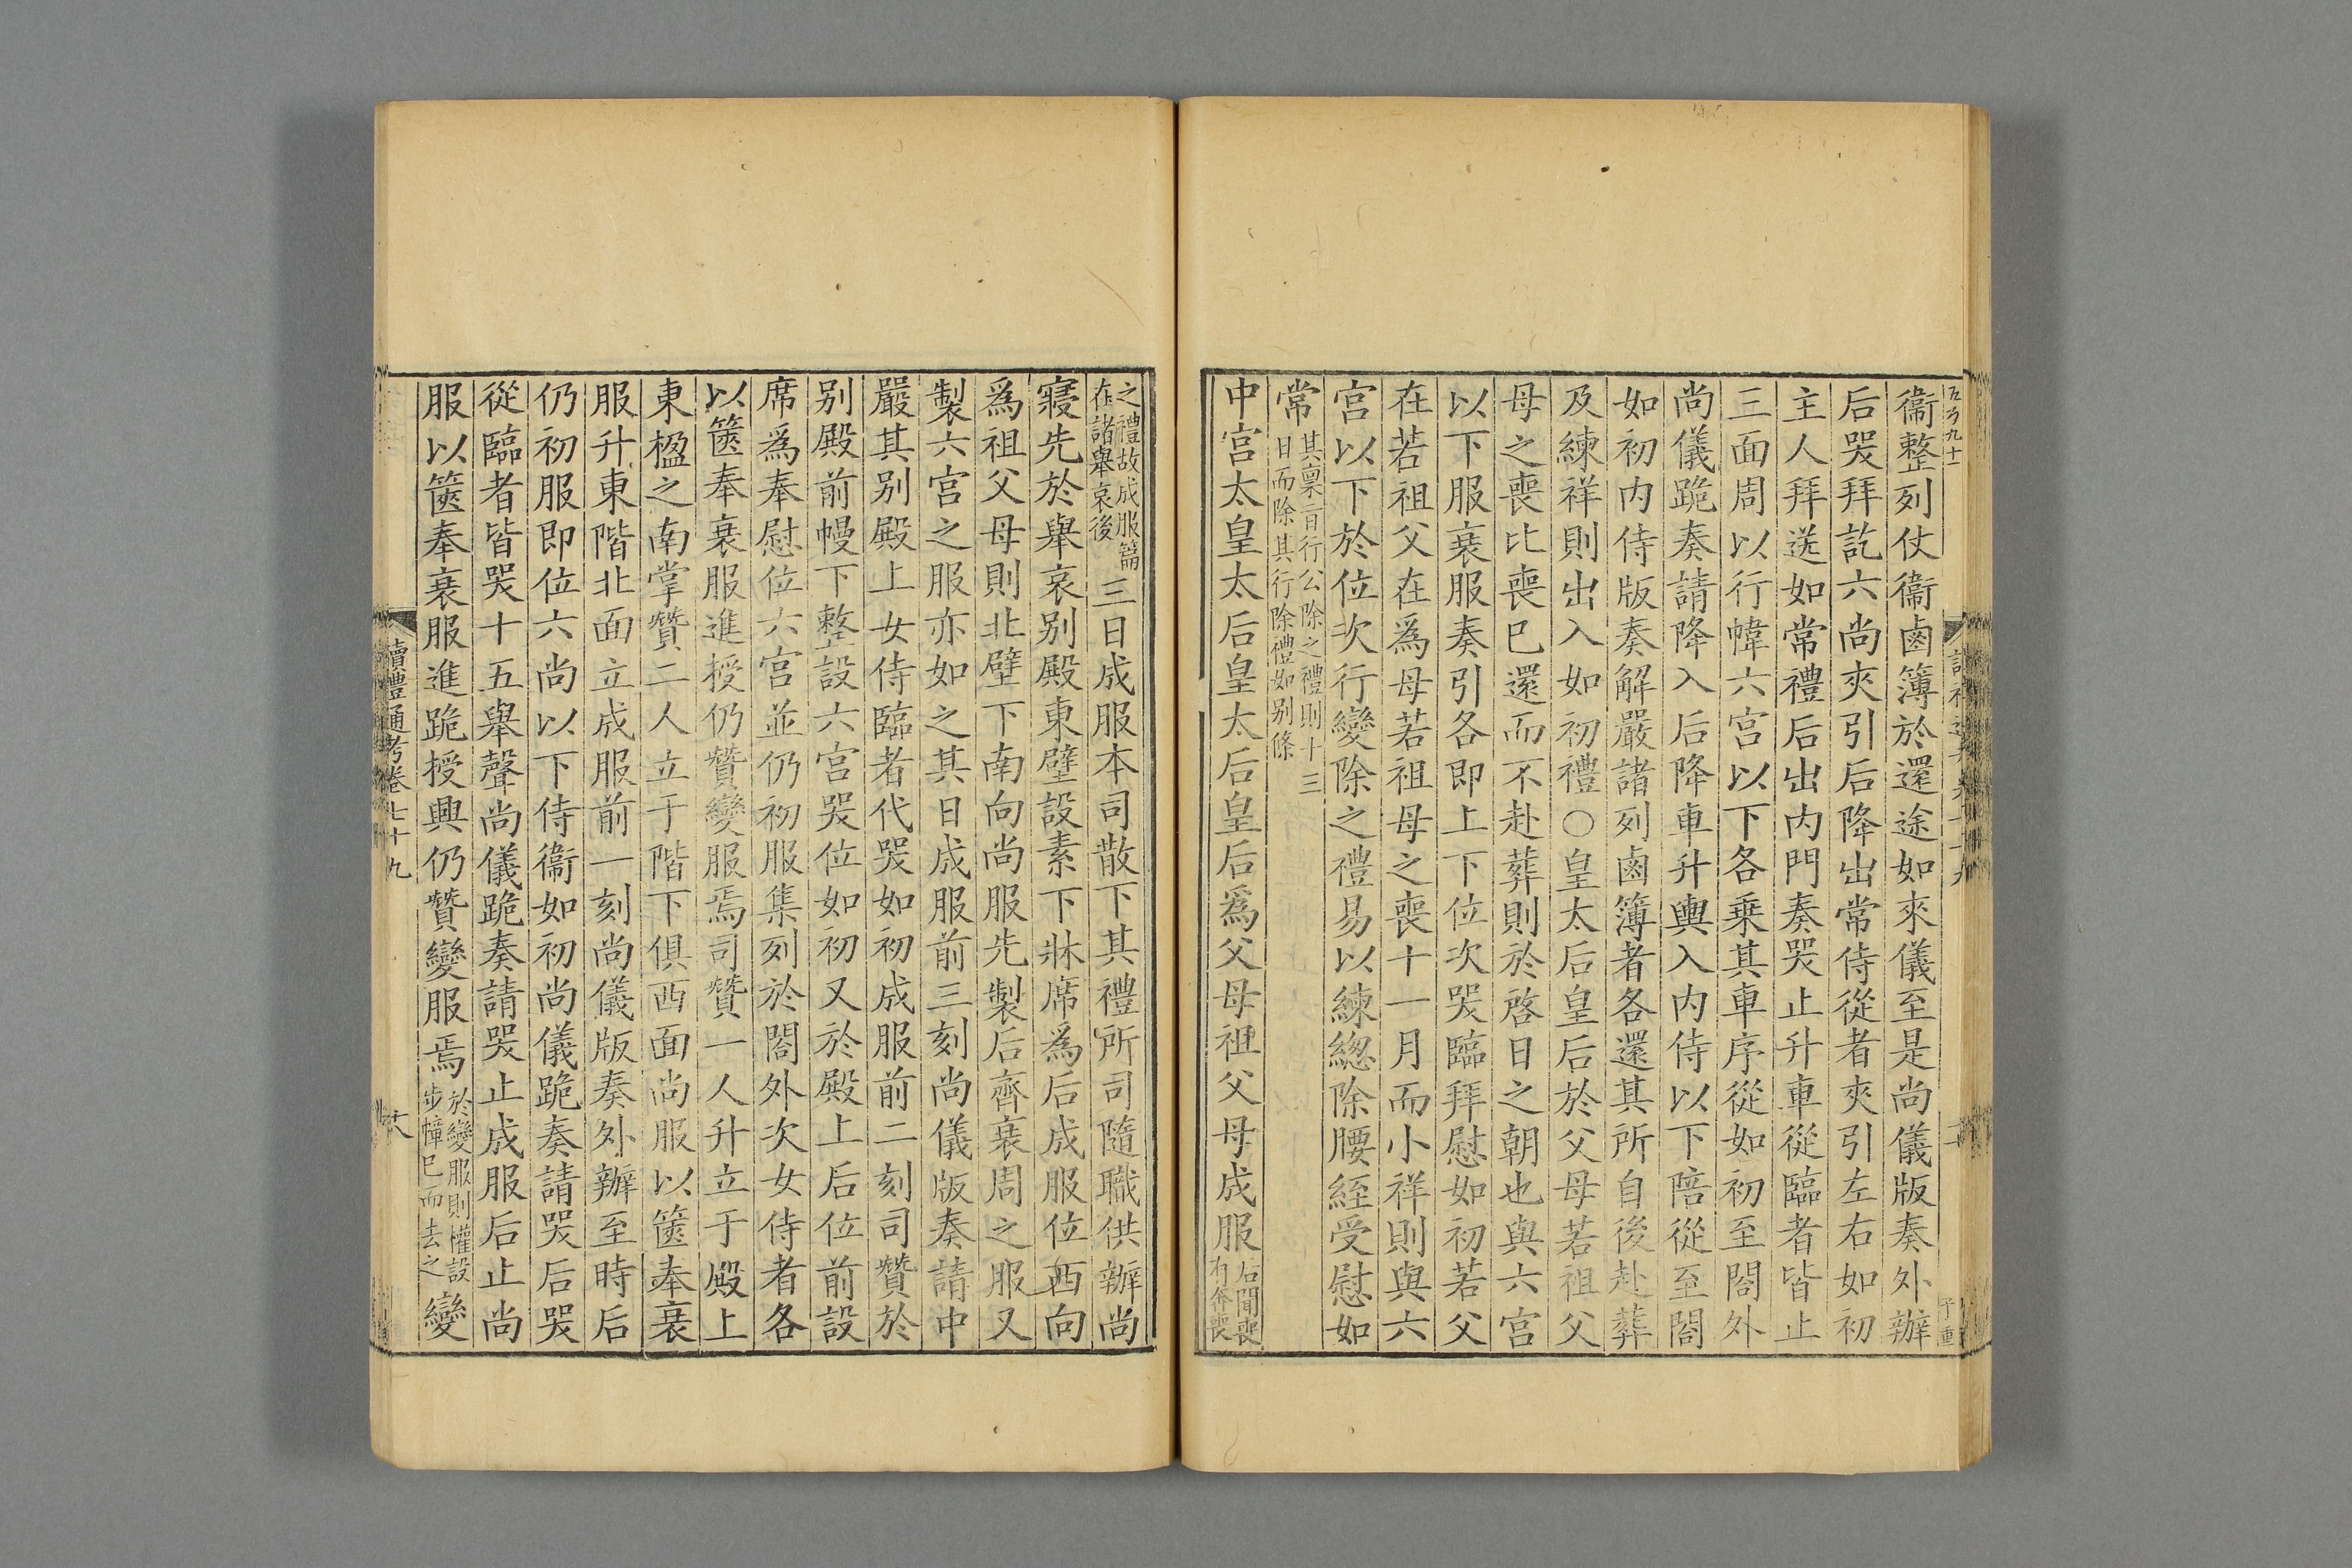 衞整列仗衞鹵簿於還途如來儀至是尚儀版奏外辦
后哭拜訖六尚夾引后降出常侍從者夾引左右如初
主人拜送如常禮后出内門奏哭止升車從臨者皆止
三面周以行幃六宮以下各乗其車序從如初至閤外
尚儀跪奏請降入后降車升輿入内侍以下陪從至閤
如初内侍版奏解嚴諸列鹵簿者各還其所自後赴葬
及練祥則出入如初禮○皇太后皇后於父母若祖父
母之喪比喪已還而不赴葬則於啓日之朝也與六宮
以下服衰服奏引各即上下位次哭臨拜慰如初若父
在若祖父在為母若祖母之喪十一月而小祥則與六
宮以下於位次行變除之禮易以練緦除腰絰受慰如
常其稟旨行公除之禮則十三日而除其行除禮如别條
中宮太皇太后皇太后皇后為父母祖父母成服后聞喪有奔喪
之禮故成服篇在諸舉哀後三日成服本司散下其禮所司隨職供辦尚
寢先於舉哀别殿東壁設素下牀席為后成服位西向
為祖父母則北壁下南向尚服先製后齊衰周之服又
製六宮之服亦如之其日成服前三刻尚儀版奏請中
嚴其别殿上女侍臨者代哭如初成服前二刻司贊於
别殿前幔下整設六宮哭位如初又於殿上后位前設
席為奉慰位六宮並仍初服集列於閤外次女侍者各
以篋奉衰服進授仍贊變服焉司贊一人升立于殿上
東楹之南掌贊二人立于階下俱西面尚服以篋奉衰
服升東階北面立成服前一刻尚儀版奏外辦至時后
仍初服即位六尚以下侍衞如初尚儀跪奏請哭后哭
從臨者皆哭十五舉聲尚儀跪奏請哭止成服后止尚
服以篋奉衰服進跪授興仍贊變服焉於變服則權設步幛已而去之變
讀禮通考卷七十九